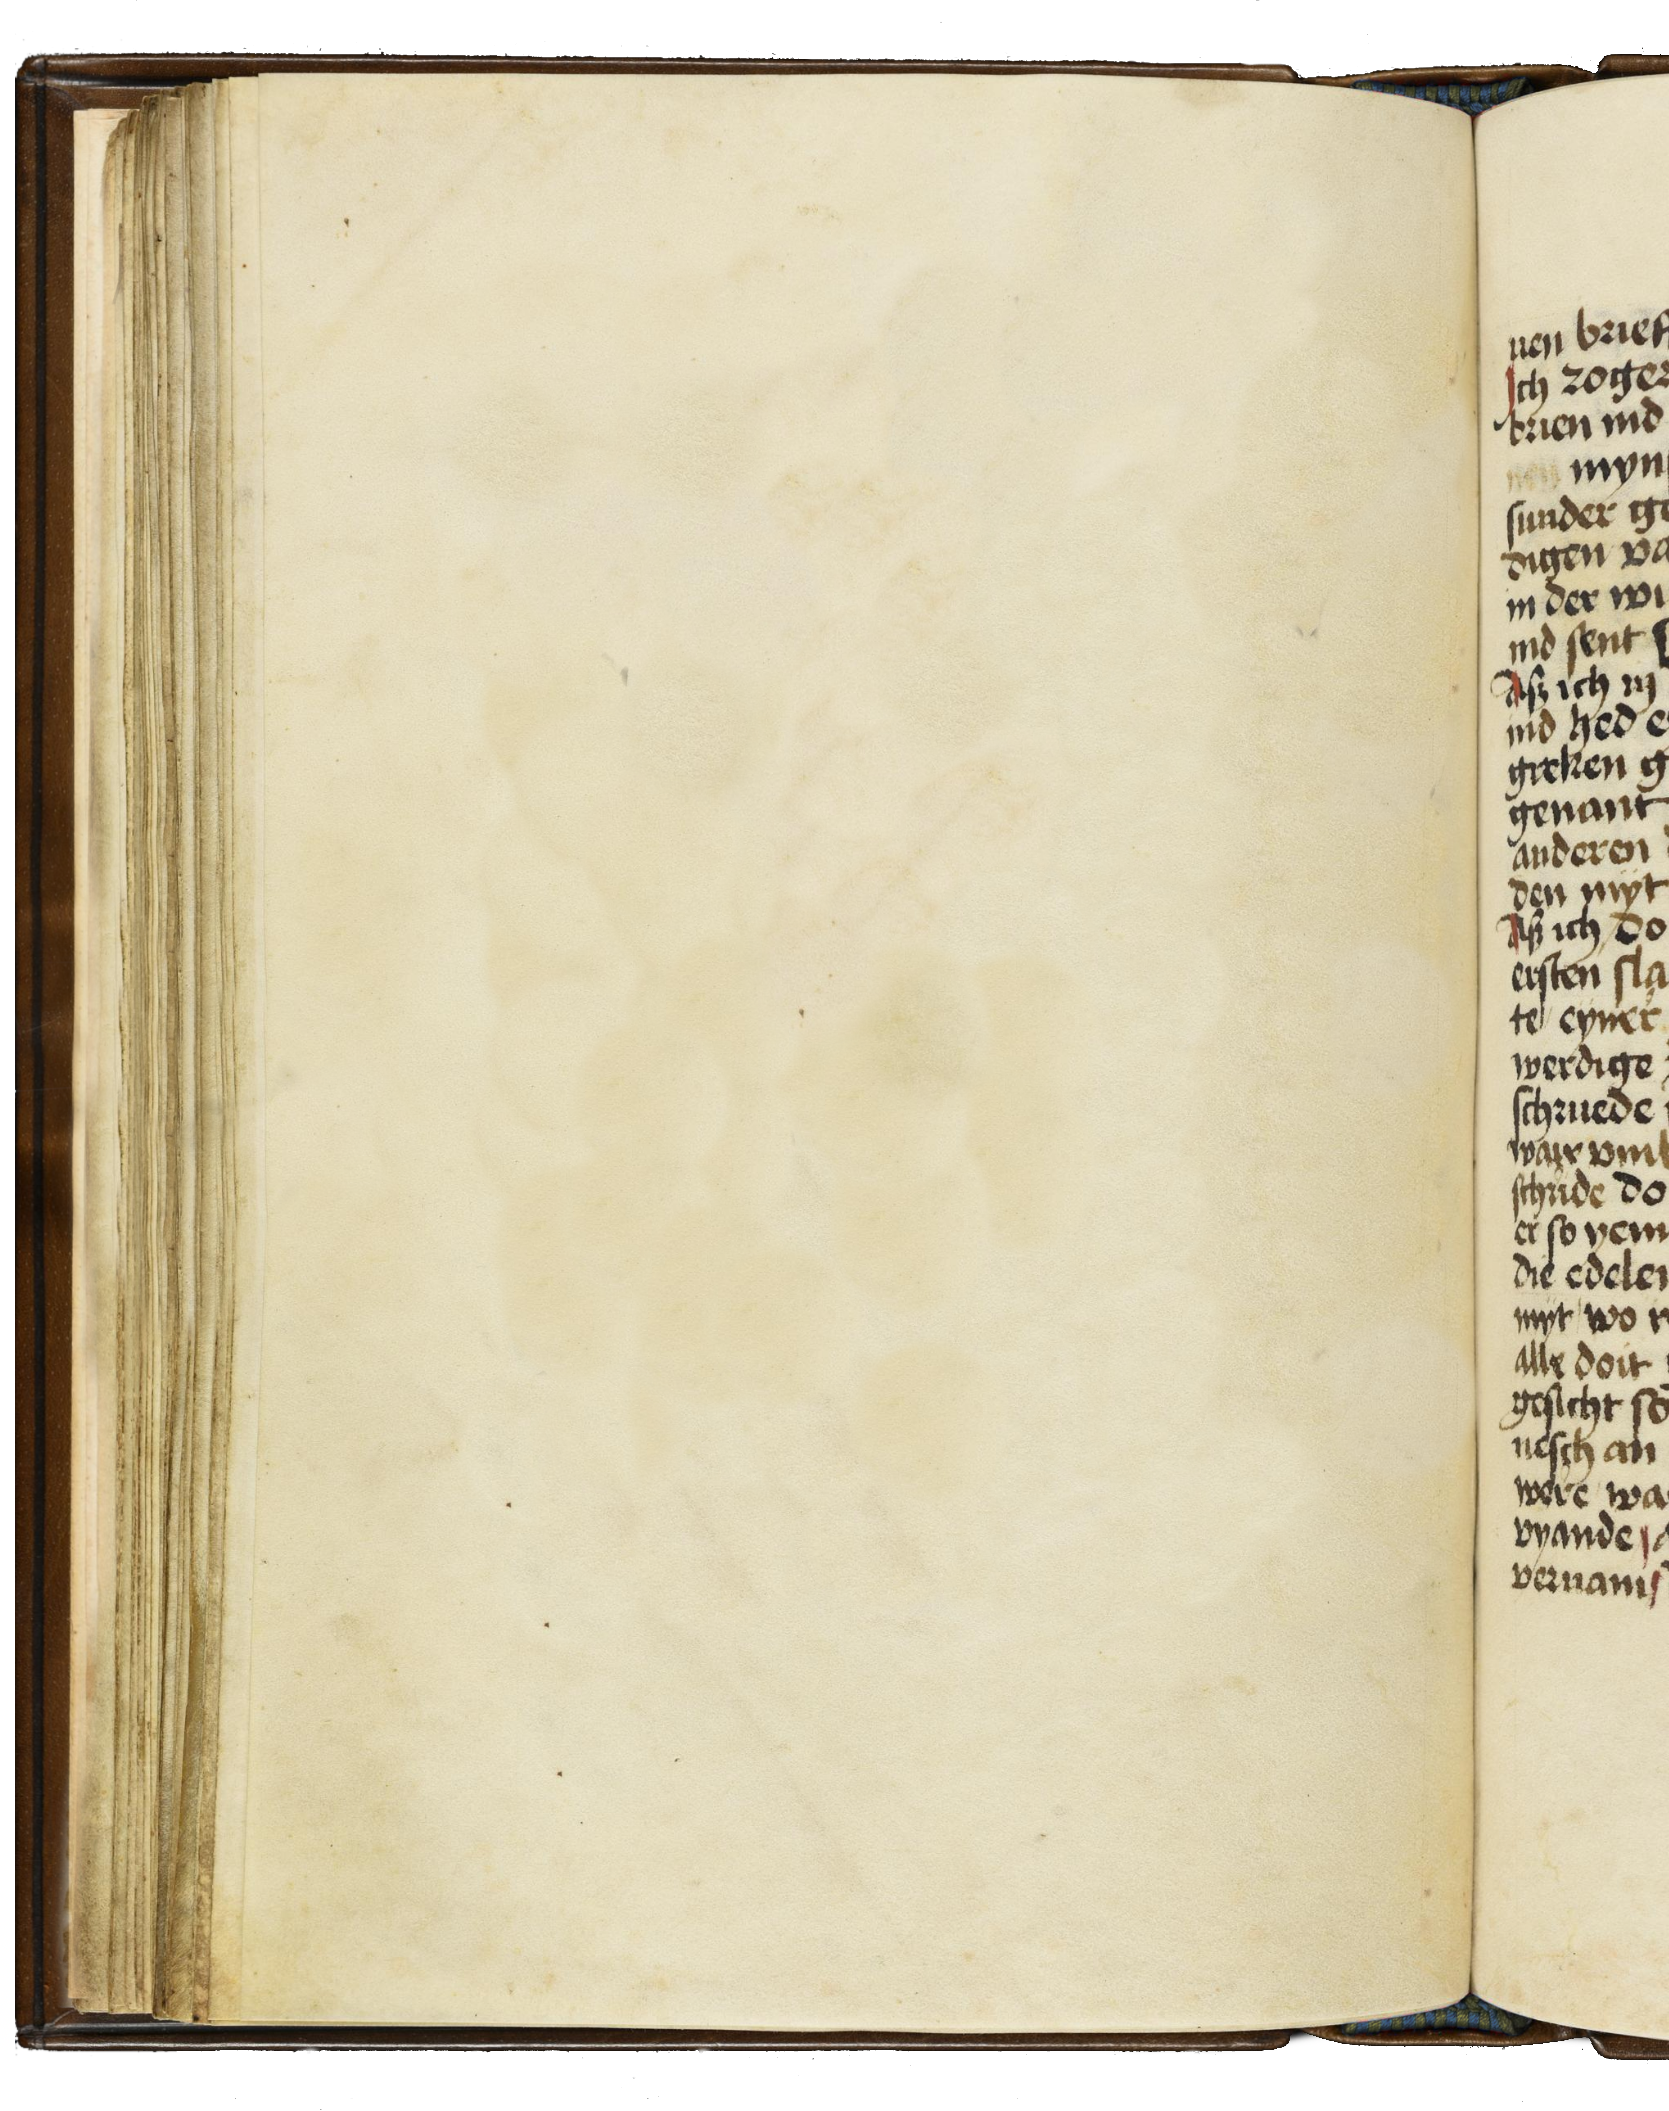 uen brieff
Ich zoger
brien ind
myn
sunder ge
digen va
in der wi
ind sent
Aſz ich in
ind hed e
greken g
genant
anderen
den myt
Aſz ich do
ersten sla
te eyner
werdige
schruede
waix vmb
schride do
er so yem
die edelen
myt wo r
alle doit
gesicht so
nesch an
were wa
vyande
vernam